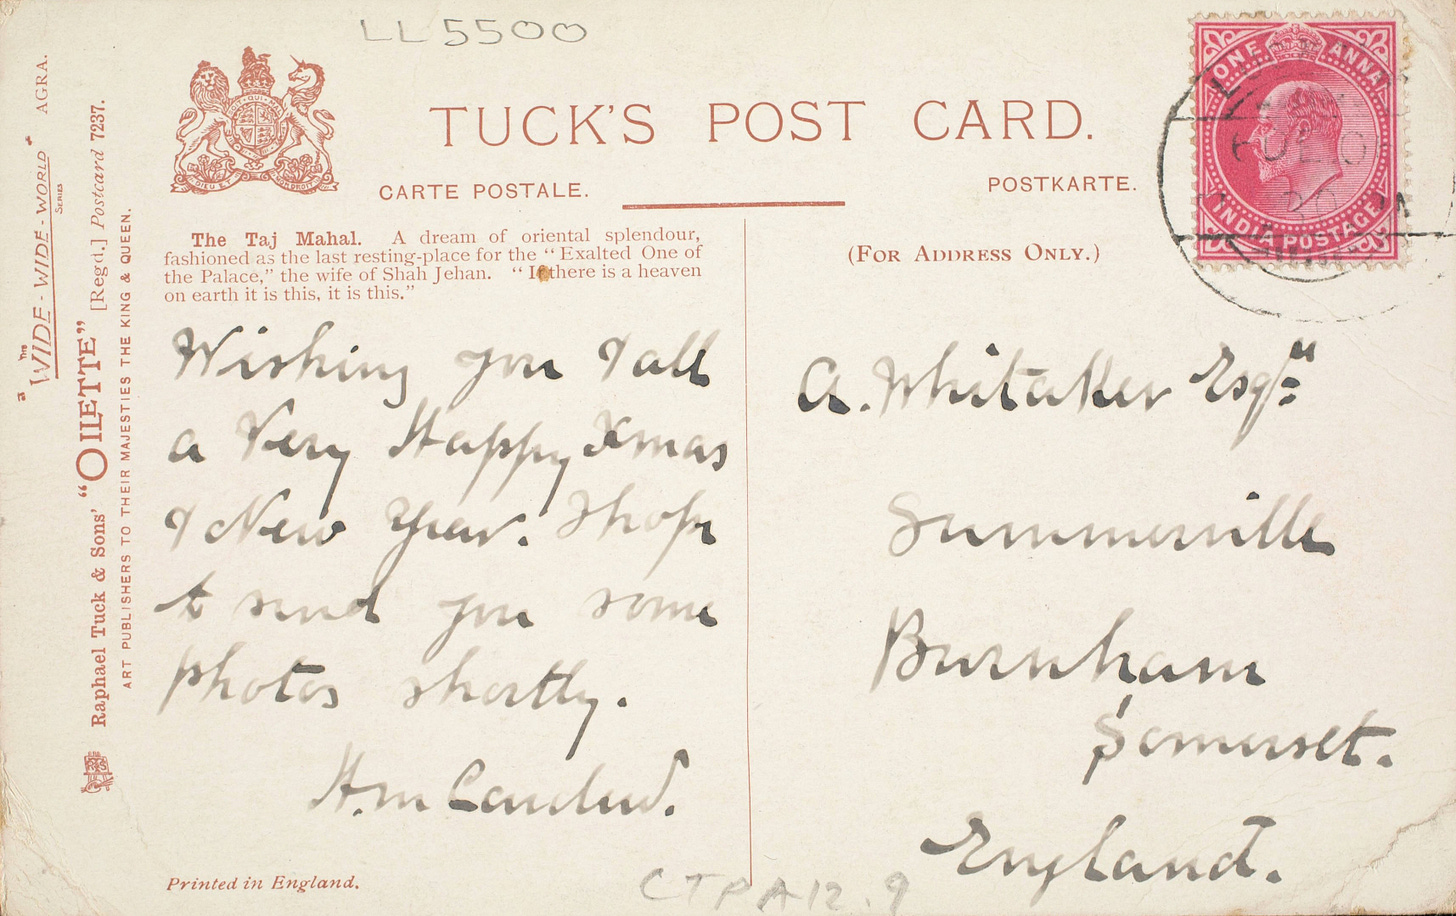 LL5500
TUCK'S POST CARD.
CARTE POSTALE.
POSTKARTE.
"THE
"WIDE-WIDE-WORLD"
SERIES
AGRA.
Raphael Tuck & Sons' "OILETTE" [Regd.] Postcard 7237.
ART PUBLISHERS TO THEIR MAJESTIES THE KING & QUEEN.
The Taj Mahal. A dream of oriental splendour,
fashioned as the last resting-place for the "Exalted One of
the Palace," the wife of Shah Jehan. "If there is a heaven
on earth it is this, it is this."
Wishing you & all
a Very Happy Xmas
& New Year. I hope
to send you some
photos shortly.
Printed in England.
(FOR ADDRESS ONLY.)
ONE ANNA
INDIA POSTAGE
A. Whitaker Esqre
Summerville
Burnham
Somerset.
England.
CTPA12.9